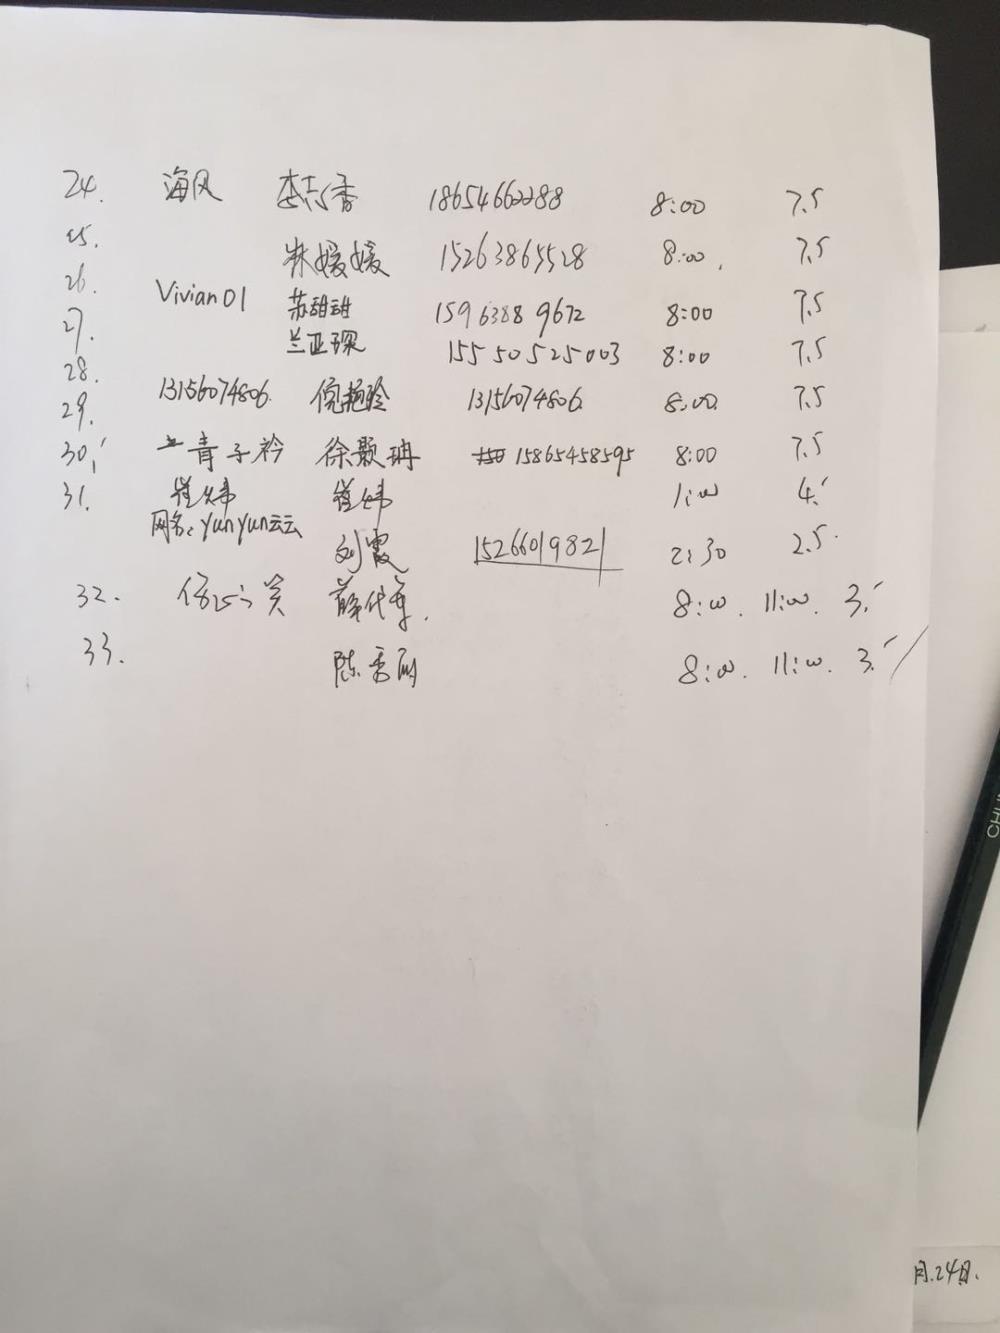 24. 海风 李志香 18654662288 8:00 7.5
25. 林媛媛 15263865528 8:00. 7.5
26. Vivian01 苏甜甜 15963889672 8:00 7.5
27. 兰亚琛 15550525003 8:00 7.5
28. 13156074806. 倪艳玲 13156074806. 8:00. 7.5
29.
30. 青子衿 徐颢珃 15865458595 8:00 7.5
31. 崔伟 崔伟 1:00 4.
网名:yunyun云云 刘霞 15266019821 2:30 2.5.
32. 薛代 8:00. 11:00. 3.
33. 陈秀丽 8:00. 11:00. 3.
CHU
月.24日.